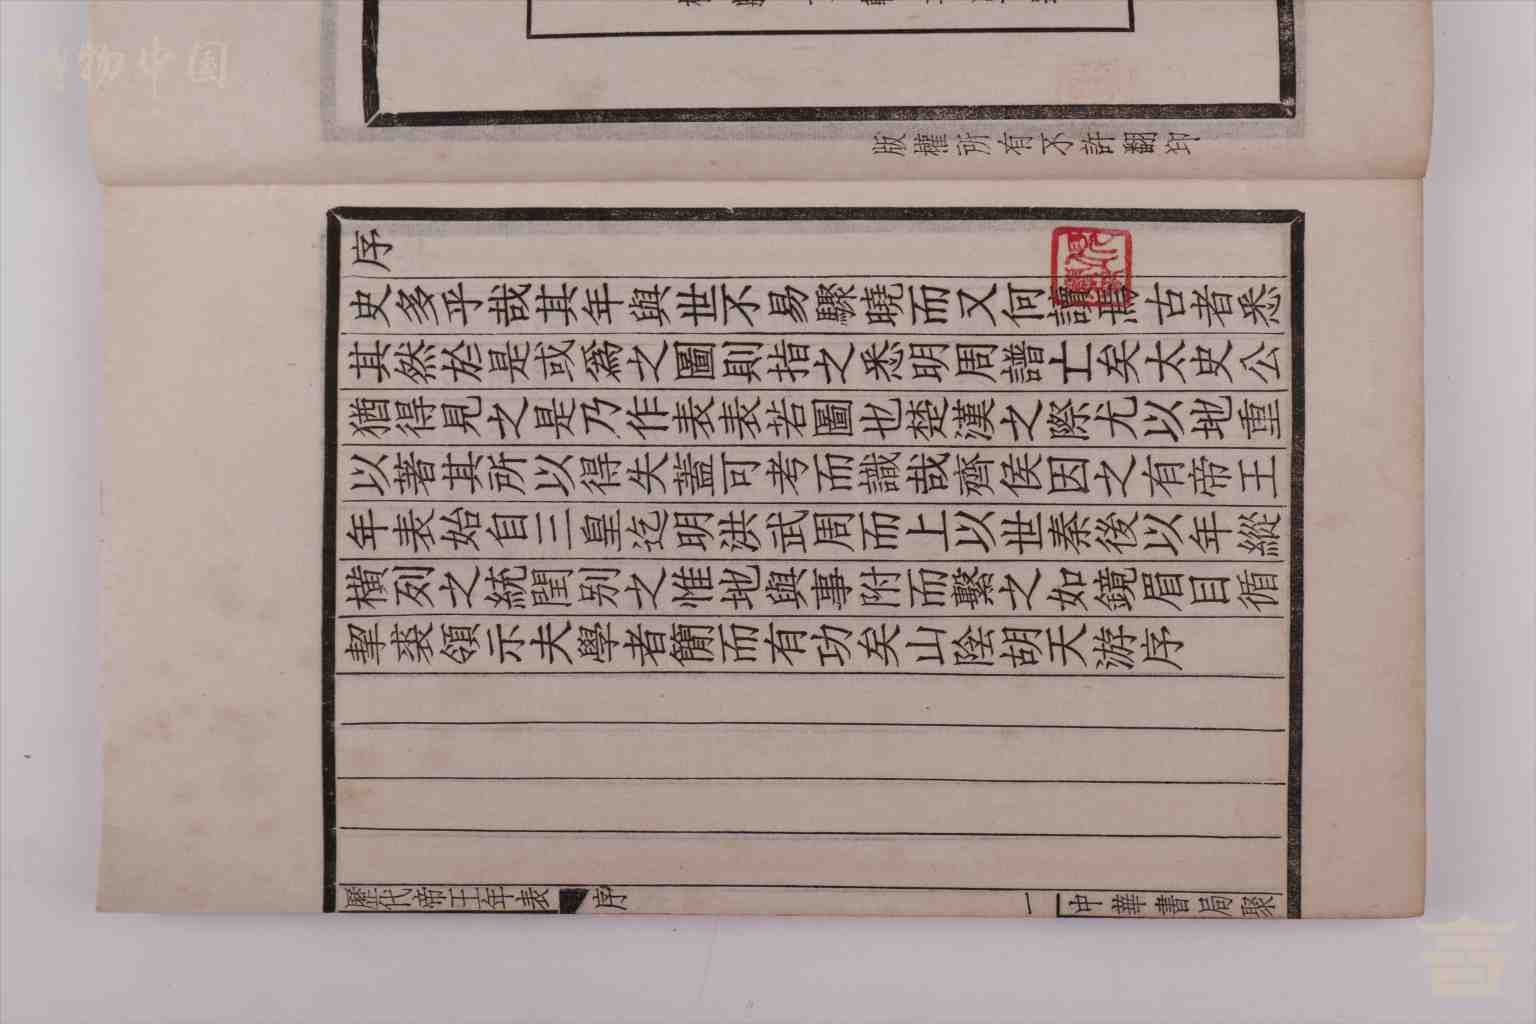 版權所有不許翻印
序
史多乎哉其年與世不易驟曉而又何讀焉古者悉
其然於是或爲之圖則指之悉明周譜亡矣太史公
猶得見之是乃作表表若圖也楚漢之際尤以地重
以著其所以得失蓋可考而識哉齊侯因之有帝王
年表始自三皇迄明洪武周而上以世秦後以年縱
橫列之統閏别之惟地與事附而繫之如鏡眉目循
挈裘領示夫學者簡而有功矣山陰胡天游序
歷代帝王年表 序 一 中華書局聚
物中国